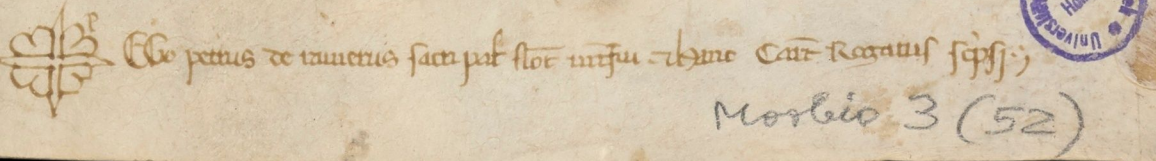 Ego petrus de raynerius sacri pal not intfui et hanc Cart Rogatus scpsi
Morbio 3 (52)